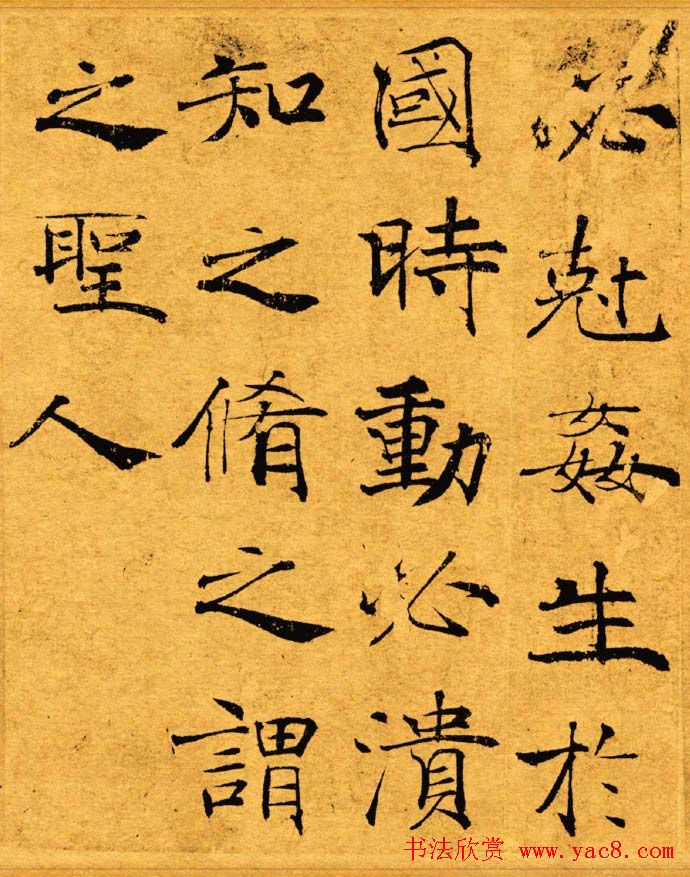 必剋姦生於
國時動必潰
知之脩之謂
之聖人
书法欣赏 www.yac8.com